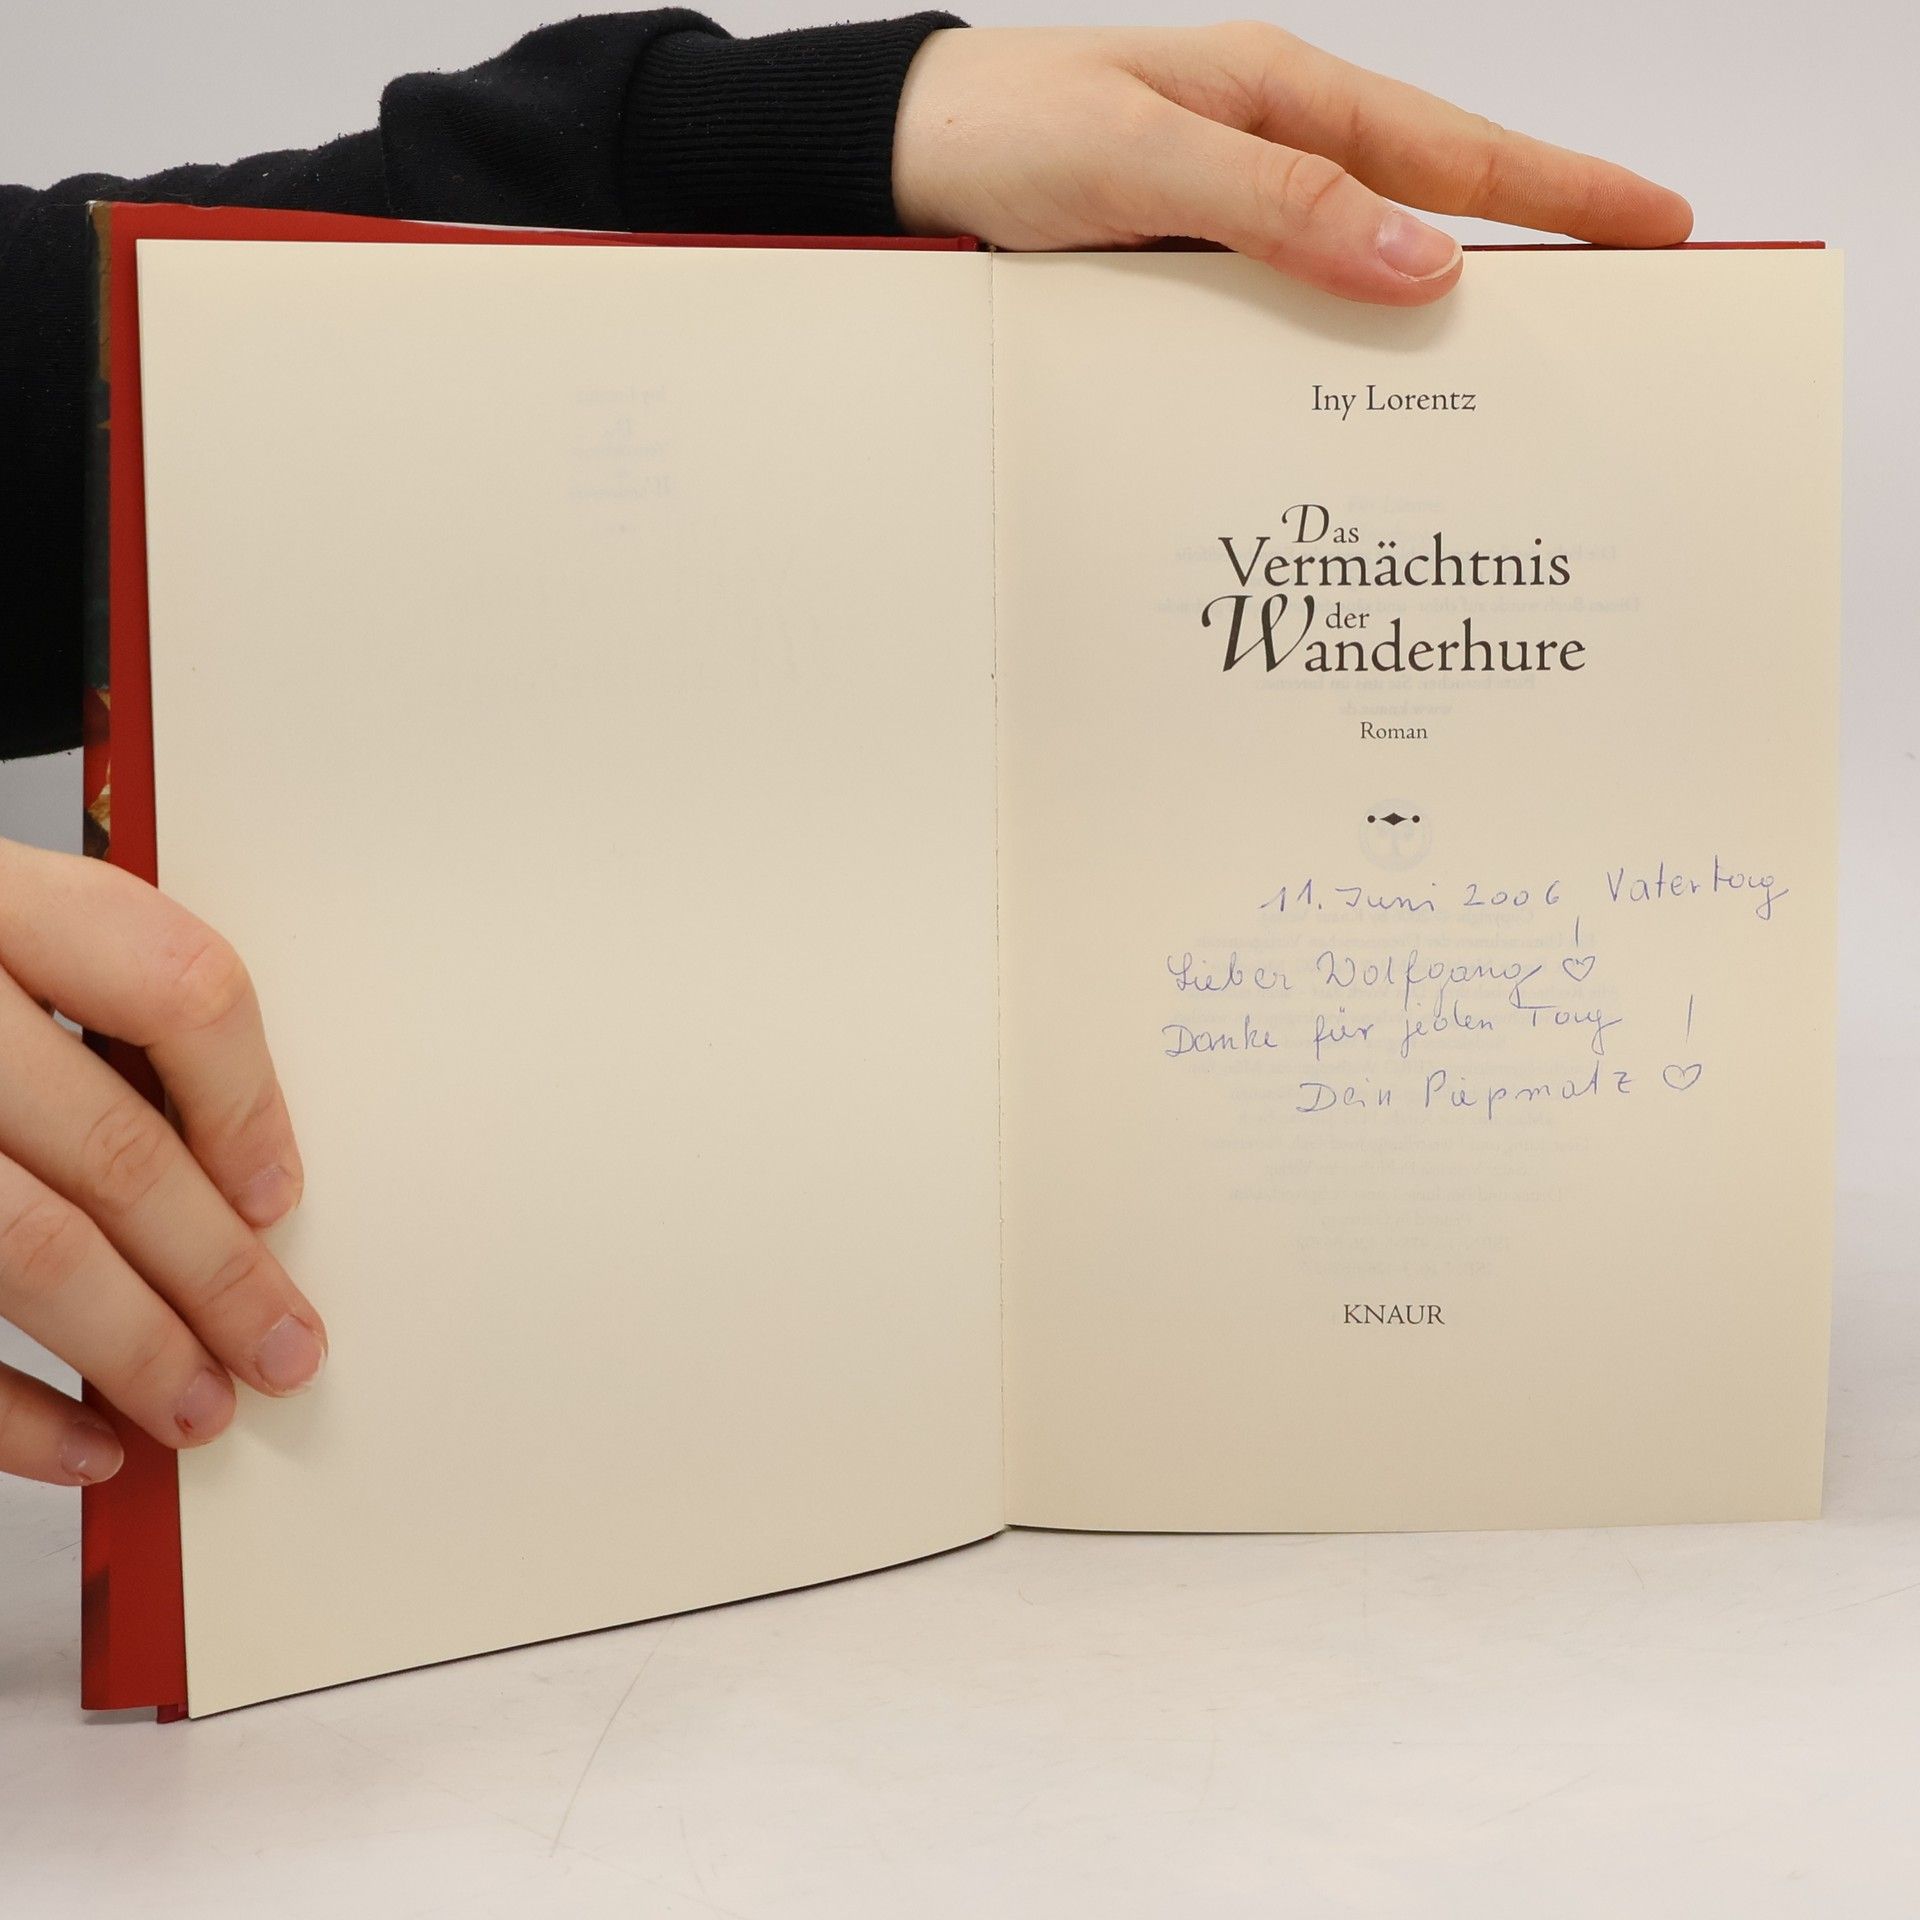 Iny Lorentz
Das
Vermächtnis
der
Wanderhure
Roman
11. Juni 2006 Vatertag
Lieber Wolfgang! ♡
Danke für jeden Tag!
Dein Piepmatz ♡
KNAUR